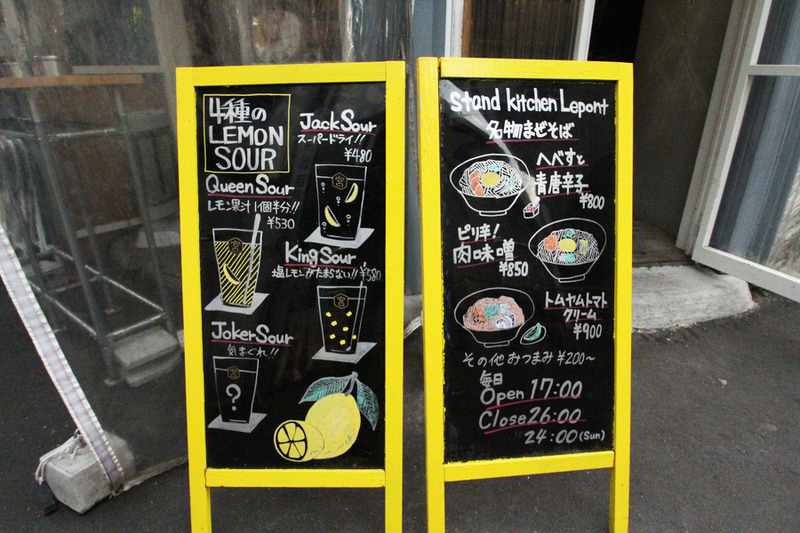 4種の
LEMON
SOUR
Jack Sour
スーパードライ!!
¥480
Queen Sour
レモン果汁1個半分!!
¥530
King Sour
塩レモンがたまらない!!
¥580
Joker Sour
気まぐれ!!
?
Stand kitchen Lepont
名物まぜそば
へべすと
青唐辛子
¥800
ピリ辛!
肉味噌
¥850
トムヤムトマト
クリーム
¥900
その他おつまみ¥200~
毎日
Open 17:00
Close 26:00
24:00(Sun)